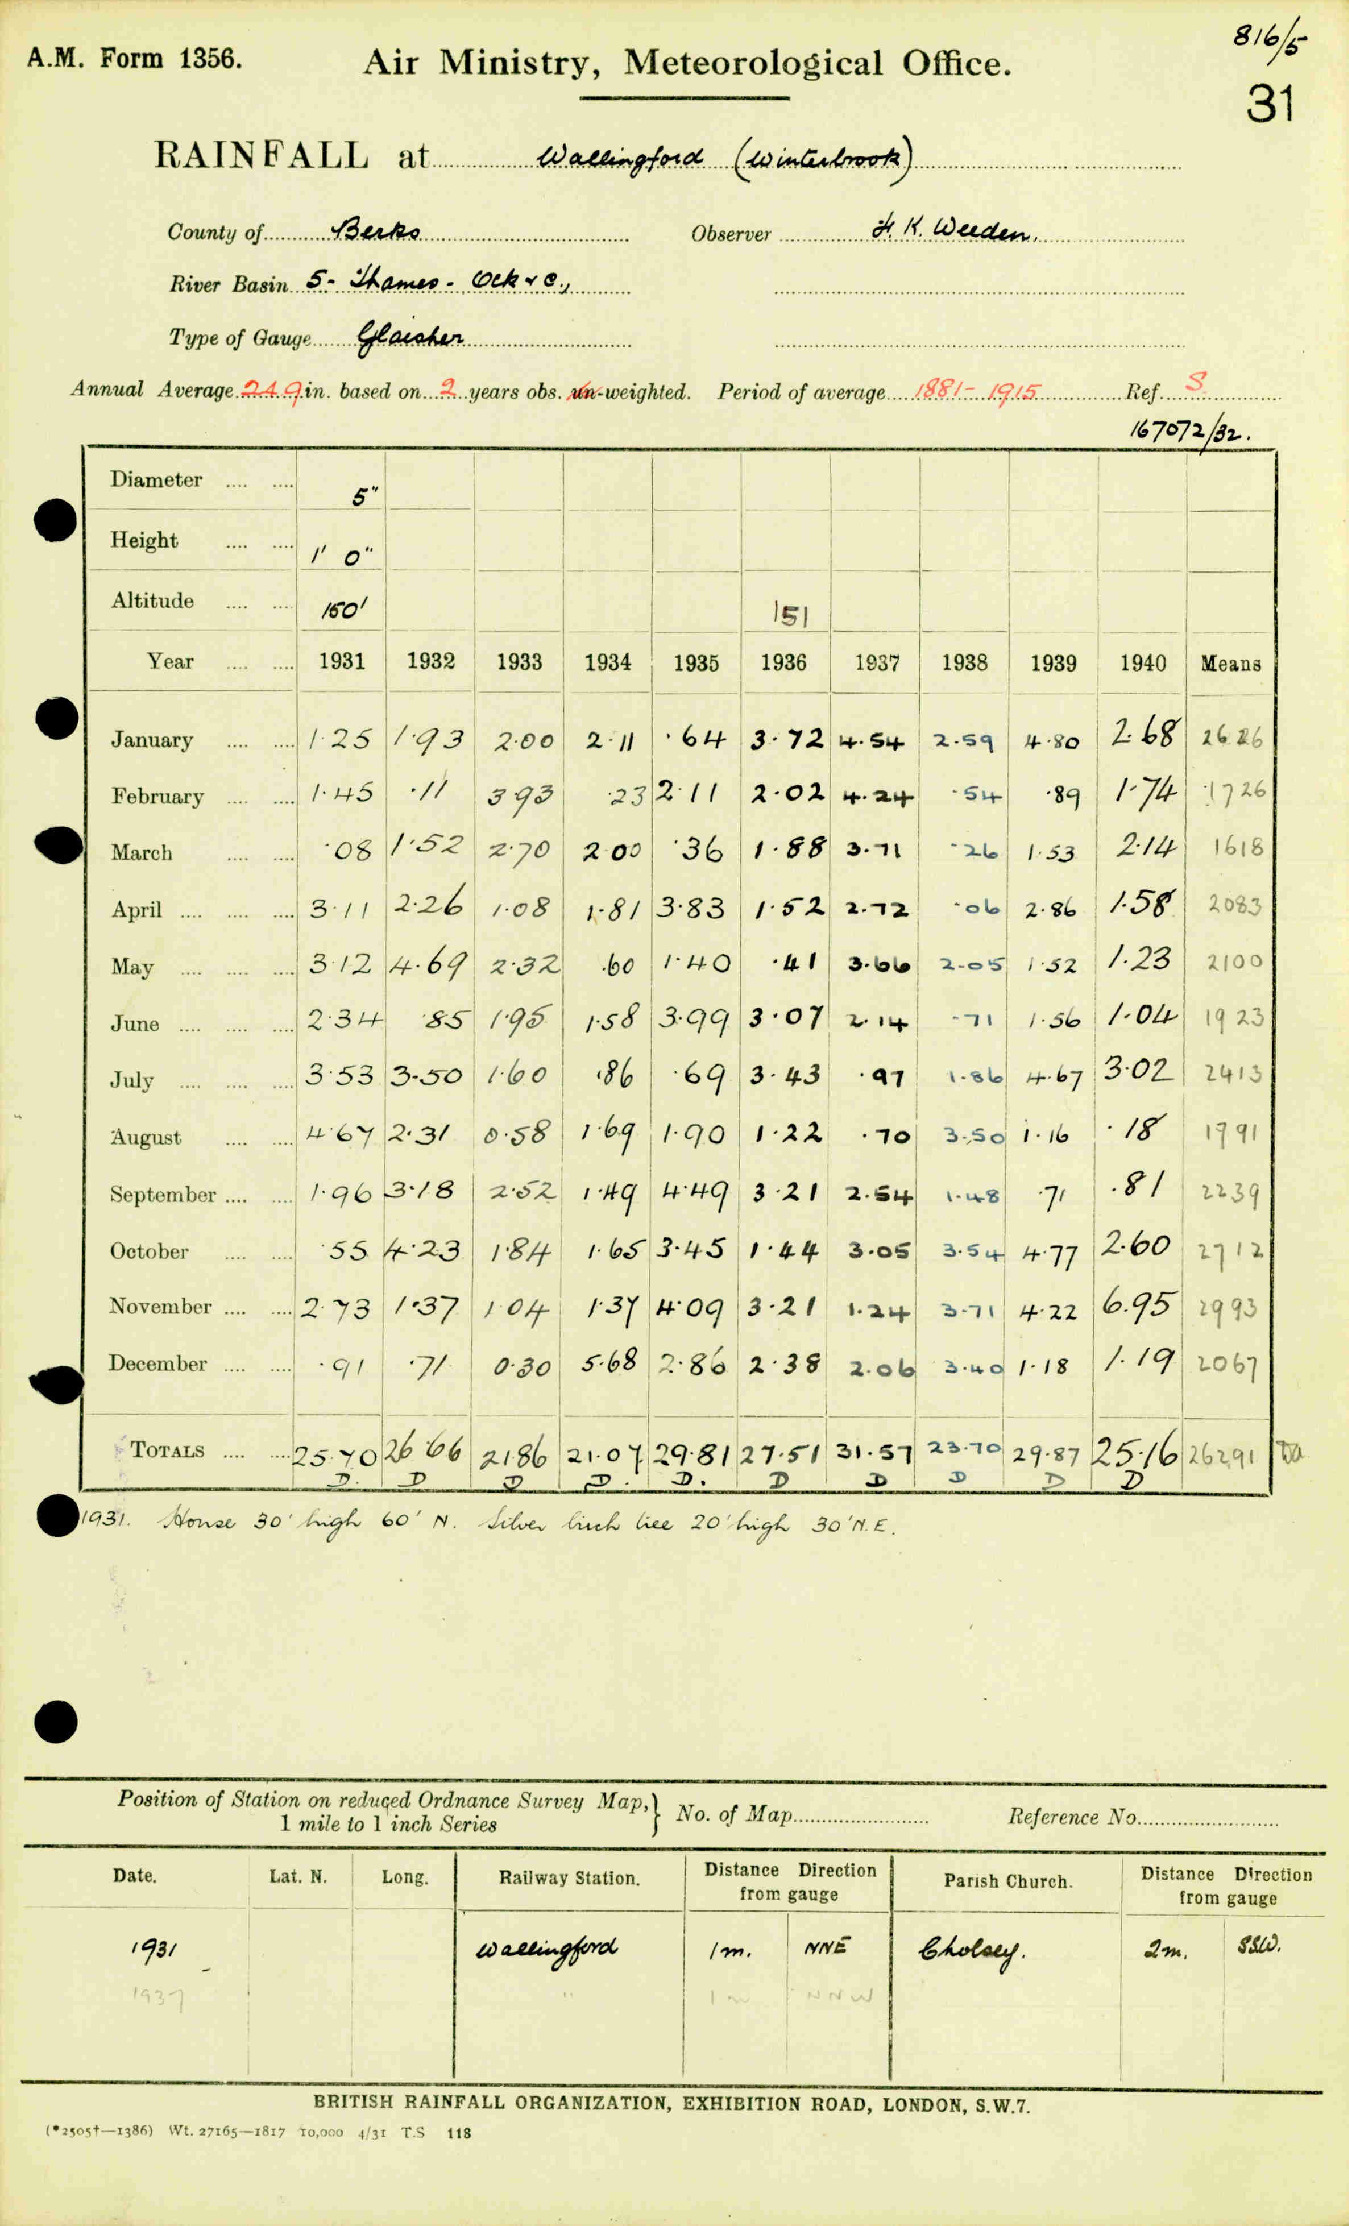 816/5
A.M. Form 1356. Air Ministry, Meteorological Office.
31
RAINFALL at Wallingford (Winterbrook)
County of Berks Observer H. K. Weeden.
River Basin 5- Thames - Ock & C.,
Type of Gauge Glaisher
Annual Average 24.9 in. based on 2 years obs. un-weighted. Period of average 1881-1915 Ref. S.
167072/32.
Diameter .... .... 5"
Height .... .... 1' 0"
Altitude .... .... 150' 151
Year .... .... 1931 1932 1933 1934 1935 1936 1937 1938 1939 1940 Means
January .... .... 1.25 1.93 2.00 2.11 .64 3.72 4.54 2.59 4.80 2.68 2626
February .... .... 1.45 .11 3.93 .23 2.11 2.02 4.24 .54 .89 1.74 1726
March .... .... .08 1.52 2.70 2.00 .36 1.88 3.71 .26 1.53 2.14 1618
April .... .... .... 3.11 2.26 1.08 1.81 3.83 1.52 2.72 .06 2.86 1.58 2083
May .... .... .... 3.12 4.69 2.32 .60 1.40 .41 3.66 2.05 1.52 1.23 2100
June .... .... .... 2.34 .85 1.95 1.58 3.99 3.07 2.14 .71 1.56 1.04 1923
July .... .... .... 3.53 3.50 1.60 .86 .69 3.43 .97 1.86 4.67 3.02 2413
August .... .... 4.67 2.31 0.58 1.69 1.90 1.22 .70 3.50 1.16 .18 1791
September .... .... 1.96 3.18 2.52 1.49 4.49 3.21 2.54 1.48 .71 .81 2239
October .... .... .55 4.23 1.84 1.65 3.45 1.44 3.05 3.54 4.77 2.60 2712
November .... .... 2.73 1.37 1.04 1.37 4.09 3.21 1.24 3.71 4.22 6.95 2993
December .... .... .91 .71 0.30 5.68 2.86 2.38 2.06 3.40 1.18 1.19 2067
TOTALS .... .... 25.70 26.66 21.86 21.07 29.81 27.51 31.57 23.70 29.87 25.16 26291
D. D D D. D. D D D D D
1931. House 30' high 60' N. Silver birch tree 20' high 30' N.E.
Position of Station on reduced Ordnance Survey Map,} No. of Map Reference No.
1 mile to 1 inch Series
Date. Lat. N. Long. Railway Station. Distance Direction from gauge Parish Church. Distance Direction from gauge
1931 Wallingford 1m. NNE Cholsey. 2m. SSW.
1937 " 1m NNW
BRITISH RAINFALL ORGANIZATION, EXHIBITION ROAD, LONDON, S.W.7.
(*2505†—1386) Wt. 27165—1817 10,000 4/31 T.S 118